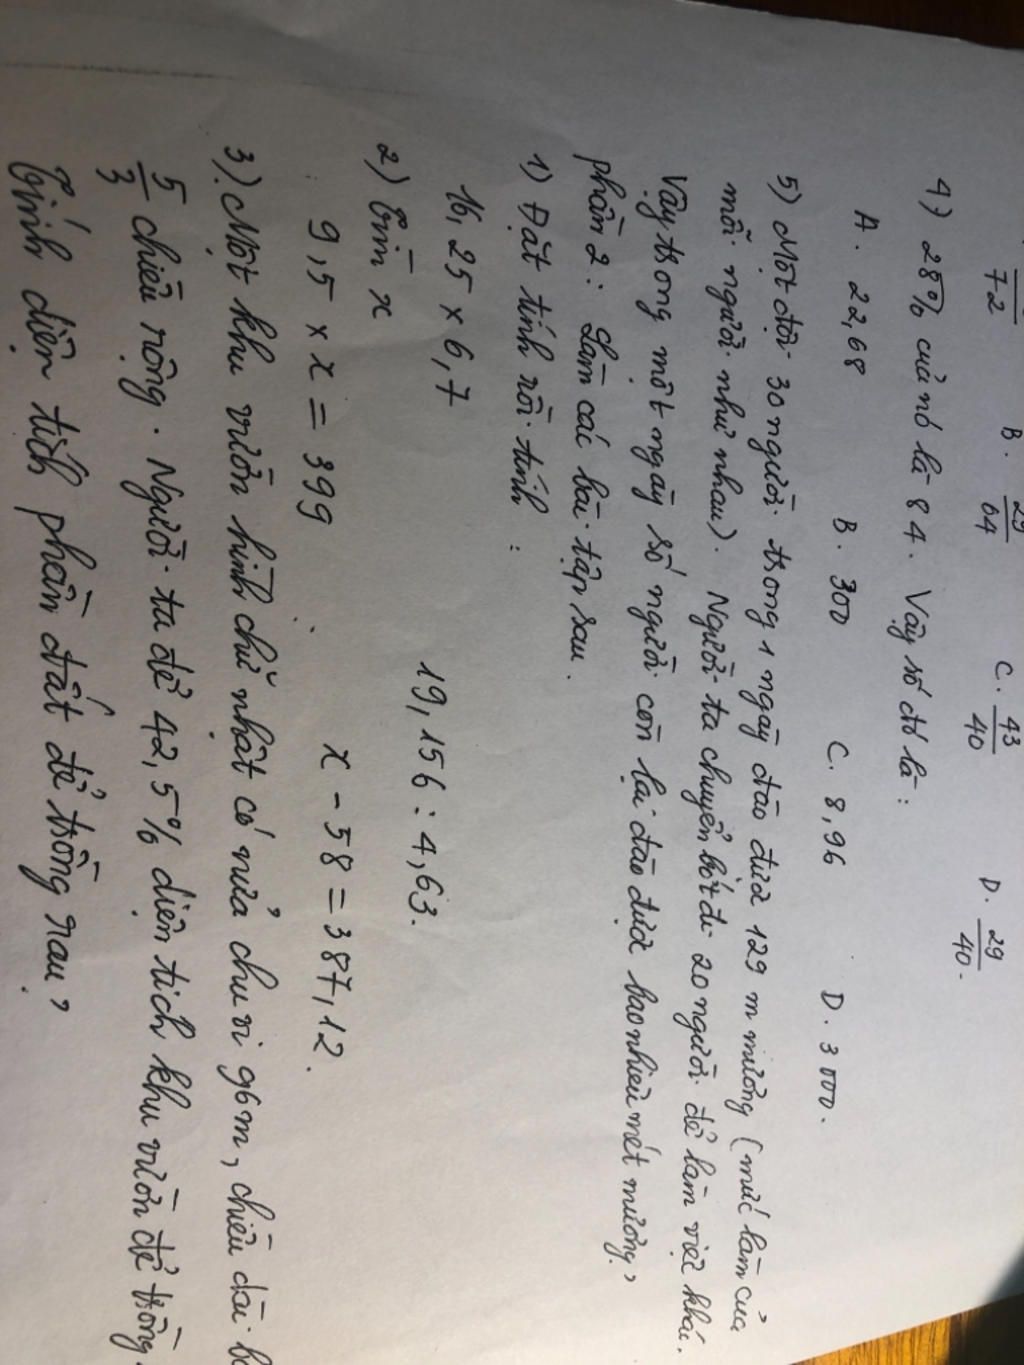 72 B. 29/64 C. 43/40 D. 29/40.
4) 28% của nó là 84. Vậy số đó là :
A. 22,68 B. 300 C. 8,96 D. 3000.
5) Một đội 30 người trong 1 ngày đào được 129 m mương (mức làm của
mỗi người như nhau). Người ta chuyển bớt đi 20 người để làm việc khác.
Vậy trong một ngày số người còn lại đào được bao nhiêu mét mương?
phần 2 : Làm các bài tập sau.
1) Đặt tính rồi tính :
16,25 x 6,7 19,156 : 4,63.
2) Tìm x
9,5 x x = 399 x - 58 = 387,12.
3) Một khu vườn hình chữ nhật có nửa chu vi 96m, chiều dài b
5/3 chiều rộng. Người ta để 42,5% diện tích khu vườn để trồng
Tính diện tích phần đất để trồng rau?